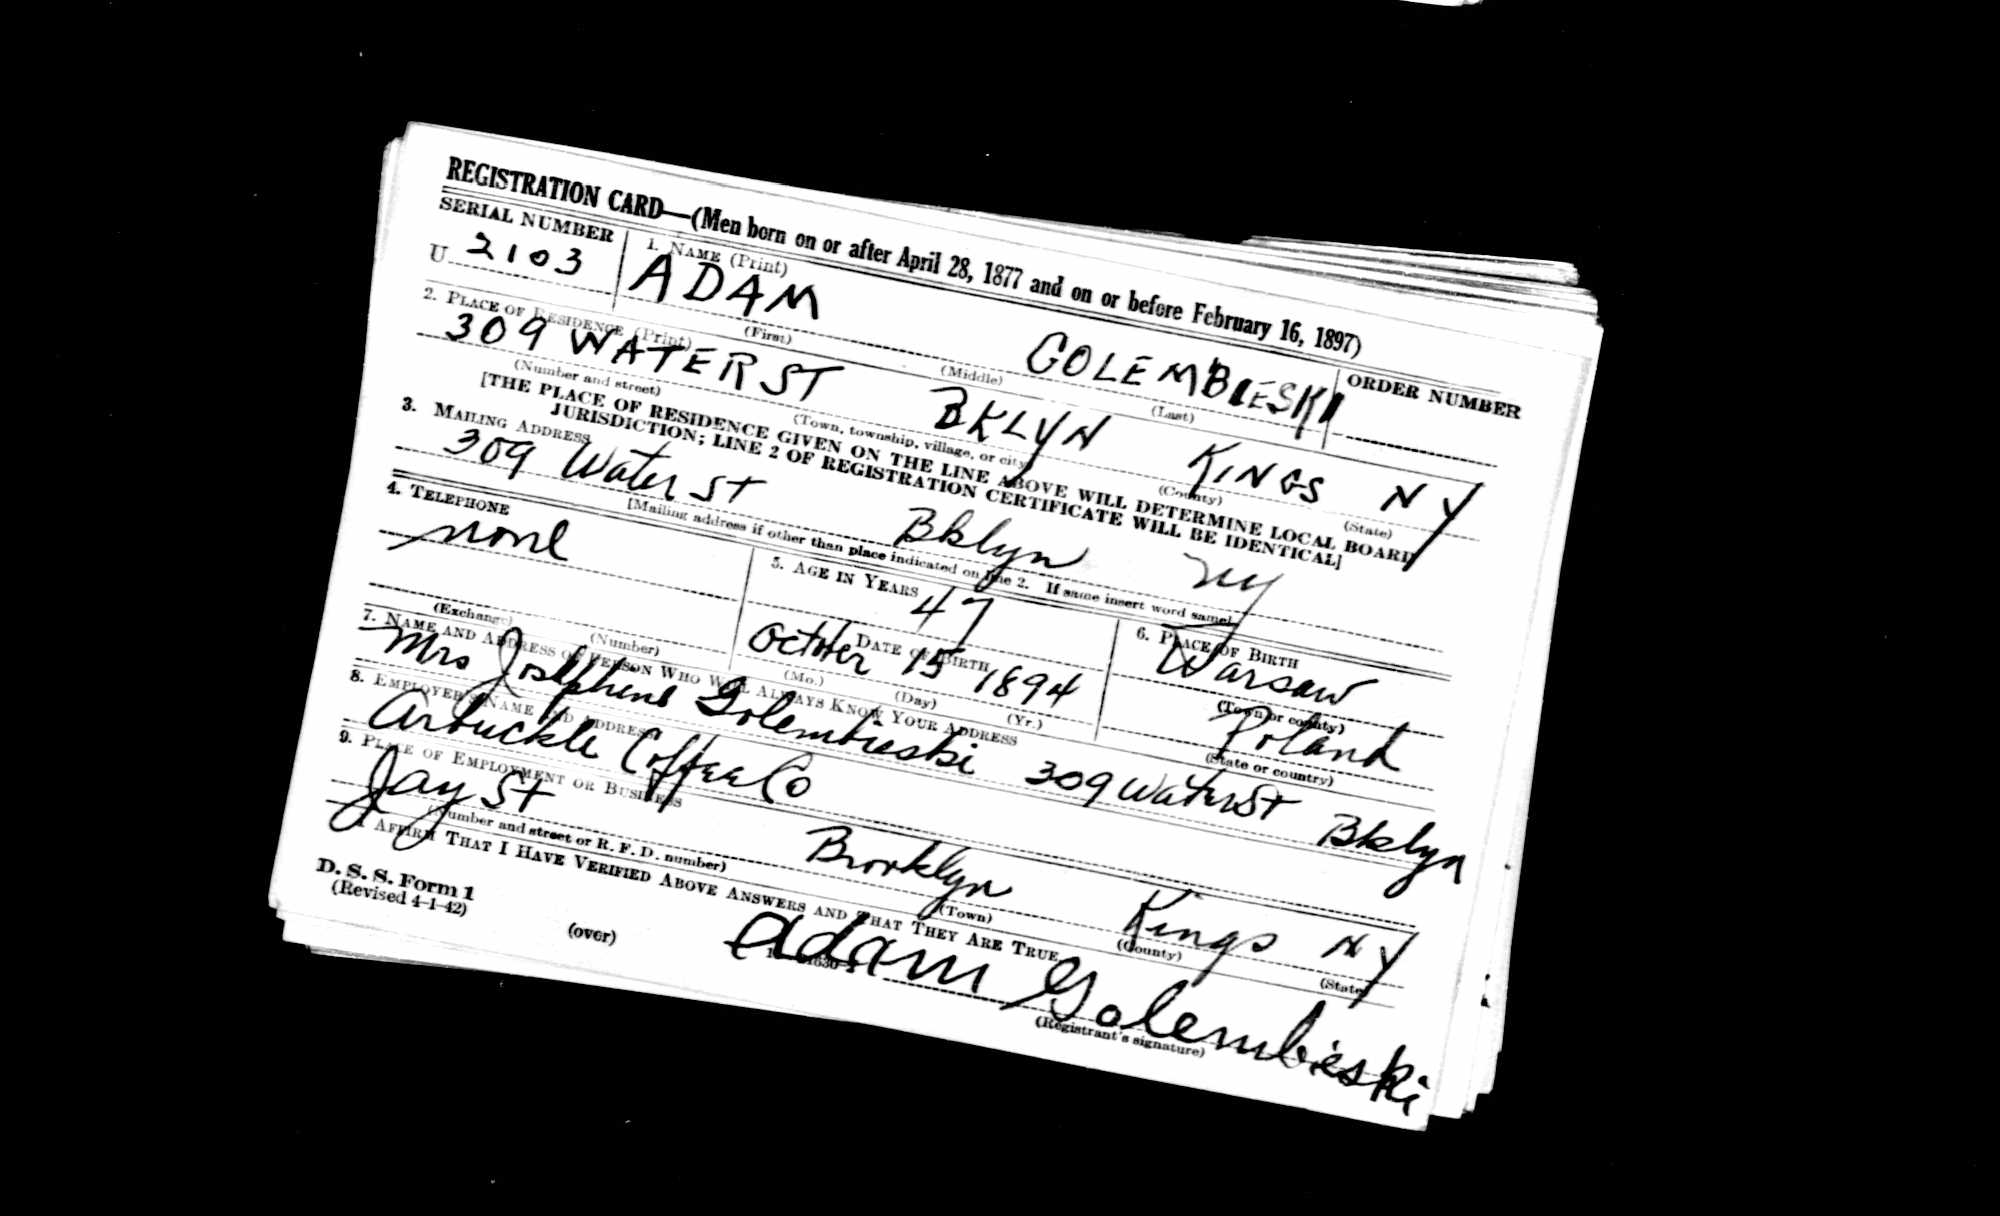 REGISTRATION CARD—(Men born on or after April 28, 1877 and on or before February 16, 1897)
SERIAL NUMBER 1. NAME (Print) ORDER NUMBER
U 2103 ADAM GOLEMBIESKI
(First) (Middle) (Last)
2. PLACE OF RESIDENCE (Print)
309 WATER ST BKLYN KINGS NY
(Number and street) (Town, township, village, or city) (County) (State)
[THE PLACE OF RESIDENCE GIVEN ON THE LINE ABOVE WILL DETERMINE LOCAL BOARD
JURISDICTION; LINE 2 OF REGISTRATION CERTIFICATE WILL BE IDENTICAL]
3. MAILING ADDRESS
309 Water St Bklyn NY
[Mailing address if other than place indicated on line 2. If same insert word same]
4. TELEPHONE 5. AGE IN YEARS 6. PLACE OF BIRTH
none 47 Warsaw
DATE OF BIRTH (Town or county)
October 15 1894 Poland
(Exchange) (Number) (Mo.) (Day) (Yr.) (State or country)
7. NAME AND ADDRESS OF PERSON WHO WILL ALWAYS KNOW YOUR ADDRESS
Mrs Josephine Golembieski 309 Water St Bklyn
8. EMPLOYER'S NAME AND ADDRESS
Arbuckle Coffee Co
9. PLACE OF EMPLOYMENT OR BUSINESS
Jay St Brooklyn Kings NY
(Number and street or R. F. D. number) (Town) (County) (State)
I AFFIRM THAT I HAVE VERIFIED ABOVE ANSWERS AND THAT THEY ARE TRUE.
D. S. S. Form 1
(Revised 4-1-42) (over) Adam Golembieski
(Registrant's signature)